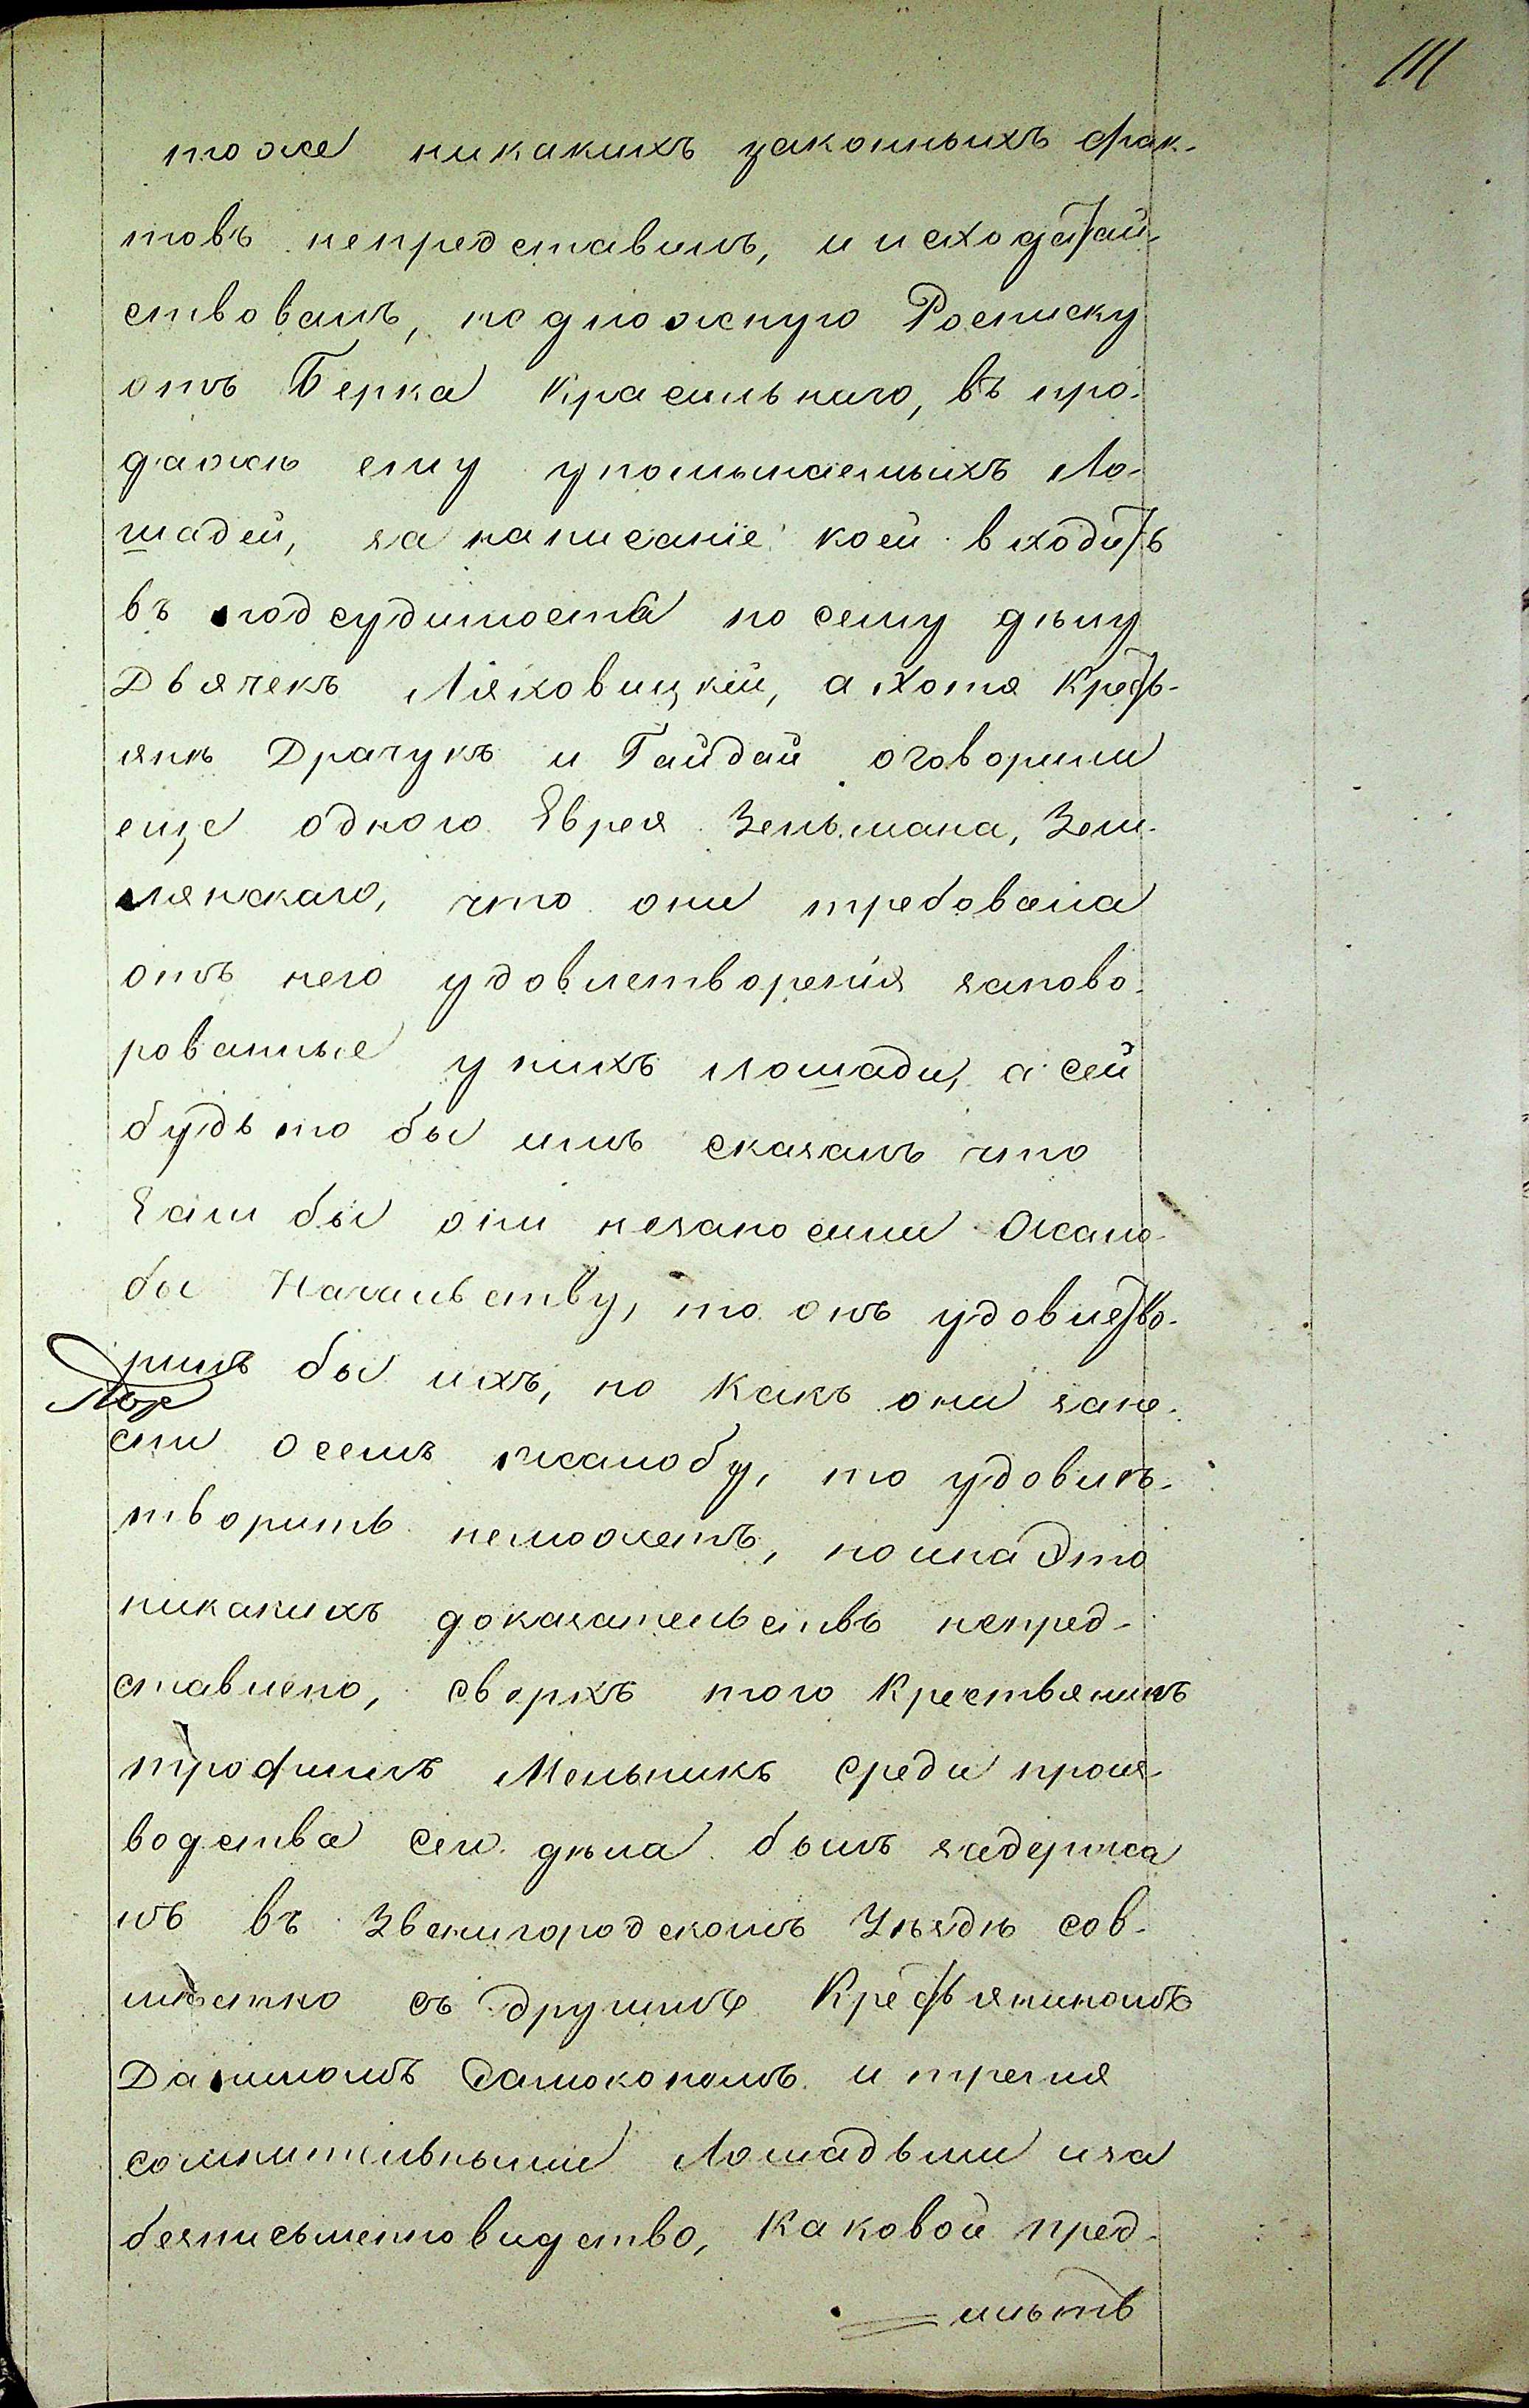 111
тоже никакихъ законныхъ фак-
товъ непредставилъ, и исходатай-
ствовалъ, подложную Росписку
отъ Берка Красильнаго, въ про-
дажѣ ему упомынаемыхъ Ло-
шадей, за написаніе коей входитъ
въ подсудимость по сему дѣлу
Дьячекъ Ляховицкій, а хотя Кресть-
янѣ Драчукъ и Гайдай оговорили
еще одного Еврея Зельмана, Зем-
лянскаго, что они требовали
отъ него удовлетворенія заново-
рованные у нихъ лошади, а сей
будьто бы имъ сказалъ что
Если бы они незаносили Жало-
бы Начальству, то онъ удовлетво-
рилъ бы ихъ, но какъ они зане-
сли осемъ жалобу, то удовлѣ-
творить неможетъ, но и на это
никакихъ доказательствъ непред-
ставлено, сверхъ того Крестьянинъ
трофимъ Мельникъ среди произ-
водства сего дѣла былъ задержа
нъ въ Звенигородскомъ Уѣздѣ сов-
мѣстно съ другимъ Крестьяниномъ
Даниломъ Самокономъ и тремя
сомнительными Лошадьми и за
безписьменновидство, каковой пред-
мѣтъ